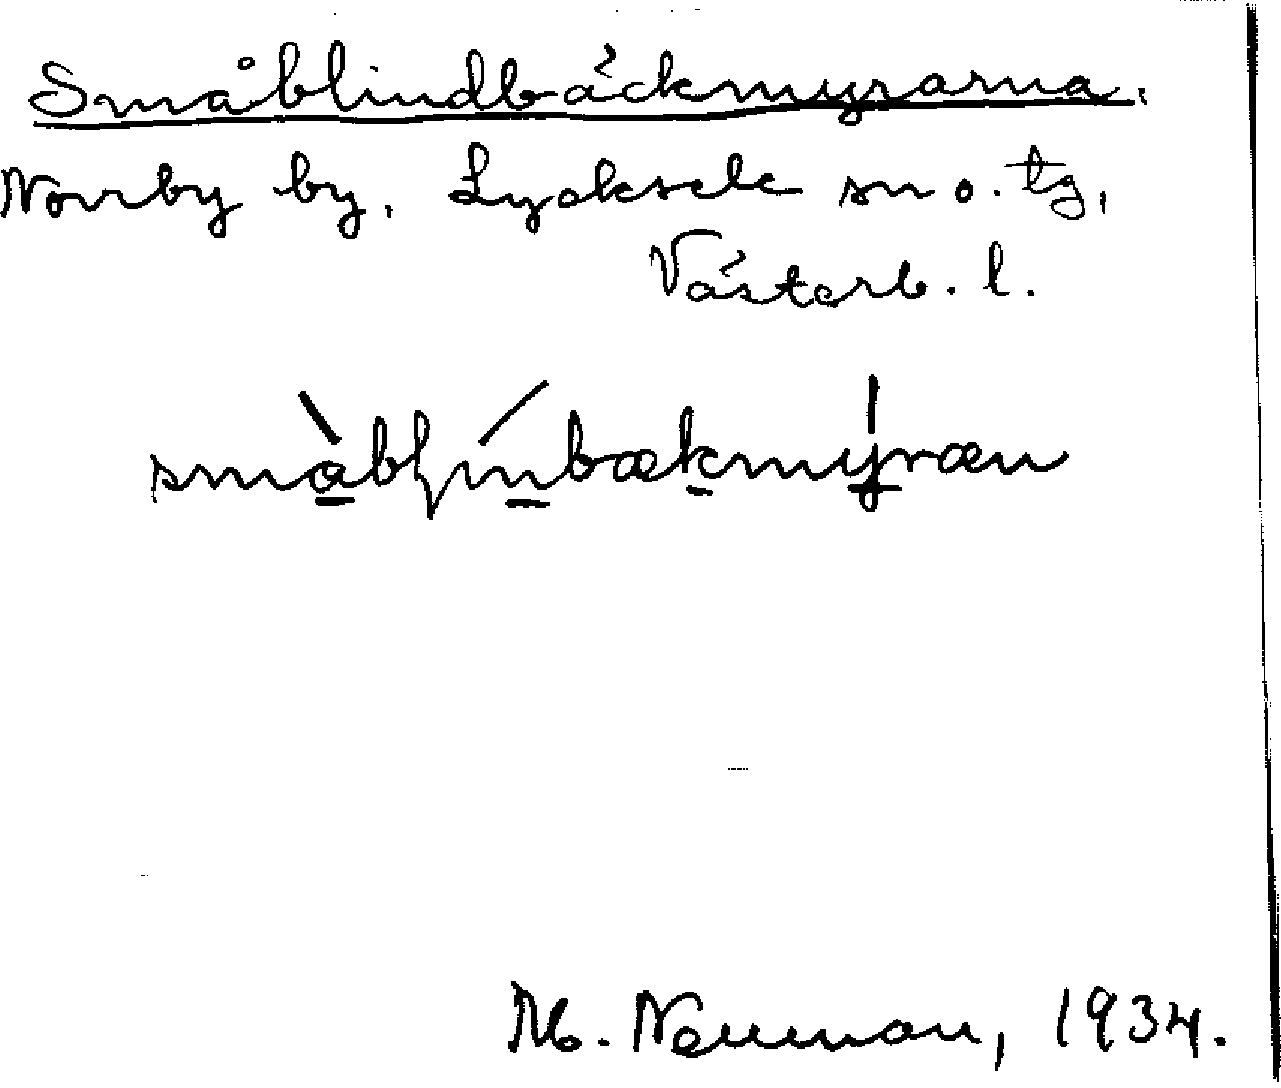 Småblindbäckmyrarna.
Norrby by, Lycksele sn o. tg,
Västerb. l.
småbḷinbækmyræn
M. Neuman, 1934.